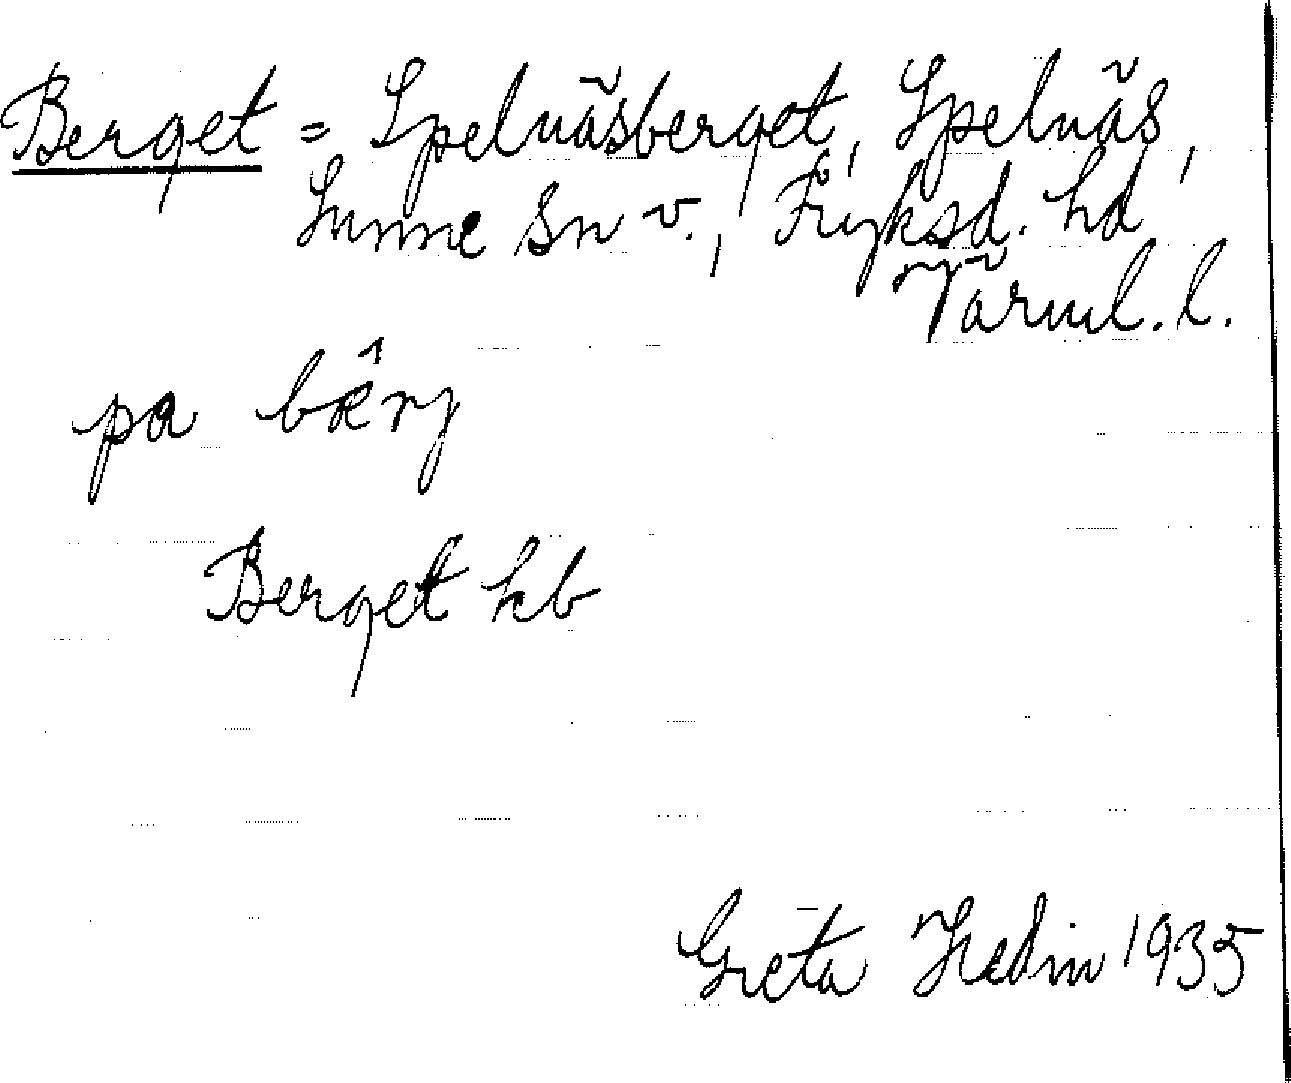 Berget = Spelnäsberget, Spelnäs,
Sunne Sn v., Fryksd. hd
Värml. l.
pa bærj
Berget hb
Greta Hedin 1935